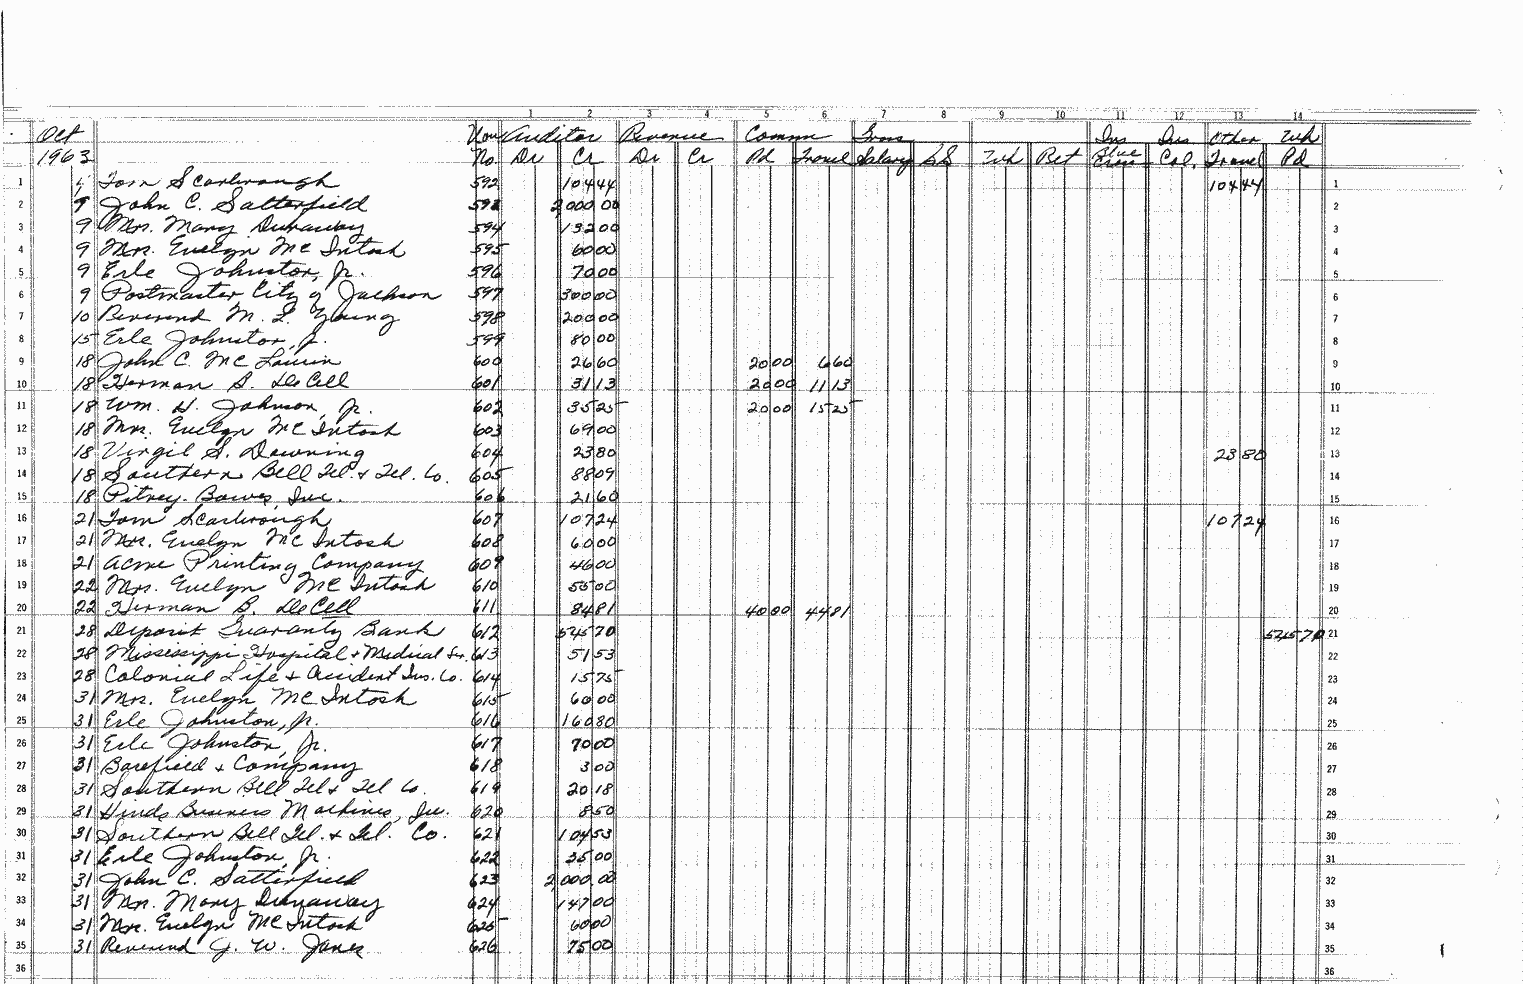 1 2 3 4 5 6 7 8 9 10 11 12 13 14
Oct Auditor Revenue Comm Gross Ins Ins Other Wh
1963 No. Dr Cr Dr Cr Pd Travel Salary SS Wh Ret Blue Cross Col. Travel Pd
1 Tom Scarbrough 592 104 44 104 44 1
2 9 John C. Satterfield 593 2 000 00 2
3 9 Mrs. Mary Dunaway 594 132 00 3
4 9 Mrs. Evelyn McIntosh 595 60 00 4
5 9 Erle Johnston, Jr. 596 70 00 5
6 9 Postmaster City of Jackson 597 300 00 6
7 10 Reverend M. L. Young 598 200 00 7
8 15 Erle Johnston, Jr. 599 80 00 8
9 18 John C. McLaurin 600 26 60 20 00 6 60 9
10 18 Herman B. DeCell 601 31 13 20 00 11 13 10
11 18 Wm. H. Johnson, Jr. 602 35 25 20 00 15 25 11
12 18 Mrs. Evelyn McIntosh 603 69 00 12
13 18 Virgil S. Downing 604 23 80 23 80 13
14 18 Southern Bell Tel. & Tel. Co. 605 88 09 14
15 18 Pitney-Bowes, Inc. 606 21 60 15
16 21 Tom Scarbrough 607 107 24 107 24 16
17 21 Mrs. Evelyn McIntosh 608 60 00 17
18 21 Acme Printing Company 609 46 00 18
19 22 Mrs. Evelyn McIntosh 610 55 00 19
20 22 Herman B. DeCell 611 84 81 40 00 44 81 20
21 28 Deposit Guaranty Bank 612 545 70 545 70 21
22 28 Mississippi Hospital & Medical Ser. 613 51 53 22
23 28 Colonial Life & Accident Ins. Co. 614 15 75 23
24 31 Mrs. Evelyn McIntosh 615 60 00 24
25 31 Erle Johnston, Jr. 616 160 80 25
26 31 Erle Johnston, Jr. 617 70 00 26
27 31 Barefield & Company 618 3 00 27
28 31 Southern Bell Tel & Tel Co. 619 20 18 28
29 31 Hinds Business Machines, Inc. 620 8 50 29
30 31 Southern Bell Tel. & Tel. Co. 621 104 53 30
31 31 Erle Johnston, Jr. 622 35 00 31
32 31 John C. Satterfield 623 2 000 00 32
33 31 Mrs. Mary Dunaway 624 147 00 33
34 31 Mrs. Evelyn McIntosh 625 60 00 34
35 31 Reverend J. W. Jones 626 75 00 35
36 36